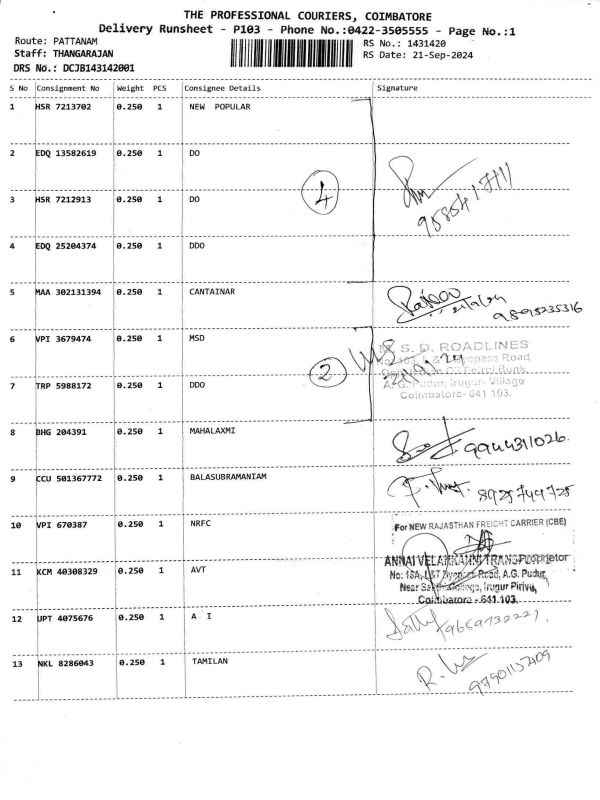 THE PROFESSIONAL COURIERS, COIMBATORE
Delivery Runsheet - P103 - Phone No.:0422-3505555 - Page No.:1
Route: PATTANAM
RS No.: 1431420
Staff: THANGARAJAN
RS Date: 21-Sep-2024
DRS No.: DCJB143142001
S No Consignment No Weight PCS Consignee Details Signature
1 HSR 7213702 0.250 1 NEW POPULAR
2 EDQ 13582619 0.250 1 DO
3 HSR 7212913 0.250 1 DO
4
4 EDQ 25204374 0.250 1 DDO
5 MAA 302131394 0.250 1 CANTAINAR
9895235316
6 VPI 3679474 0.250 1 MSD
S. D. ROADLINES
2
7 TRP 5988172 0.250 1 DDO
A. G. Pudur, Irugur- Village
Coimbatore- 641 103.
8 BHG 204391 0.250 1 MAHALAXMI
9944311026
9 CCU 501367772 0.250 1 BALASUBRAMANIAM
8925749725
10 VPI 670387 0.250 1 NRFC
For NEW RAJASTHAN FREIGHT CARRIER (CBE)
11 KCM 40308329 0.250 1 AVT
No: 16A, L&T Bypass Road, A.G. Pudur,
Irugur Pirivu,
Coimbatore - 641 103.
12 UPT 4075676 0.250 1 A I
13 NKL 8286043 0.250 1 TAMILAN